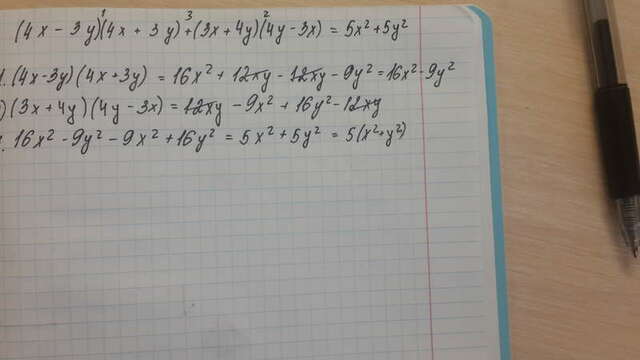 (4x - 3y)(4x + 3y) + (3x + 4y)(4y - 3x) = 5x² + 5y²
1 3 2
1. (4x-3y)(4x+3y) = 16x² + 12xy - 12xy - 9y² = 16x² - 9y²
) (3x + 4y)(4y - 3x) = 12xy - 9x² + 16y² - 12xy
. 16x² - 9y² - 9x² + 16y² = 5x² + 5y² = 5(x²+y²)